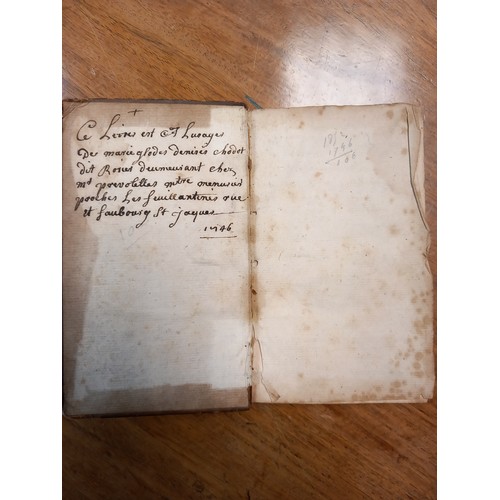 Ce Livres est Et Lusages
De marie glodes denises chodot
dit Roses deumeurant chez
Mr prevotelles mtre menusié
proches Les feuillantines rue
et faubourg St jaques
1746
1746